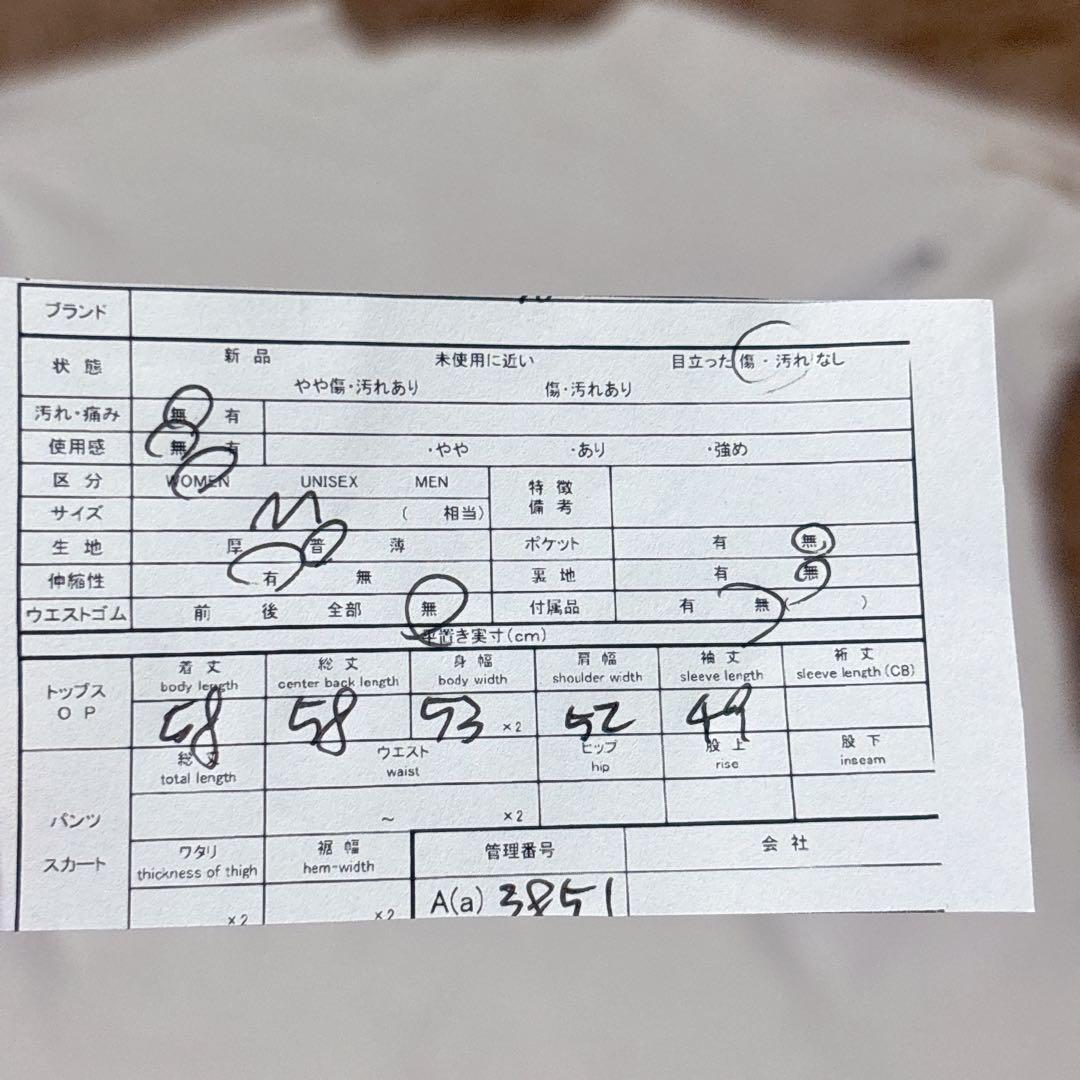 ブランド
状態 新品 未使用に近い 目立った傷・汚れなし
やや傷・汚れあり 傷・汚れあり
汚れ・痛み 無 有
使用感 無 有 ・やや ・あり ・強め
区分 WOMEN UNISEX MEN 特徴
備考
サイズ M ( 相当)
生地 厚 普 薄 ポケット 有 無
伸縮性 有 無 裏地 有 無
ウエストゴム 前 後 全部 無 付属品 有 無 ( )
平置き実寸(cm)
トップス
OP
着丈 総丈 身幅 肩幅 袖丈 裄丈
body length center back length body width shoulder width sleeve length sleeve length(CB)
58 58 53 ×2 52 49
パンツ
スカート
総丈 ウエスト ヒップ 股上 股下
total length waist hip rise inseam
～ ×2
ワタリ 裾幅 管理番号 会社
thickness of thigh hem-width
×2 ×2 A(a) 3851